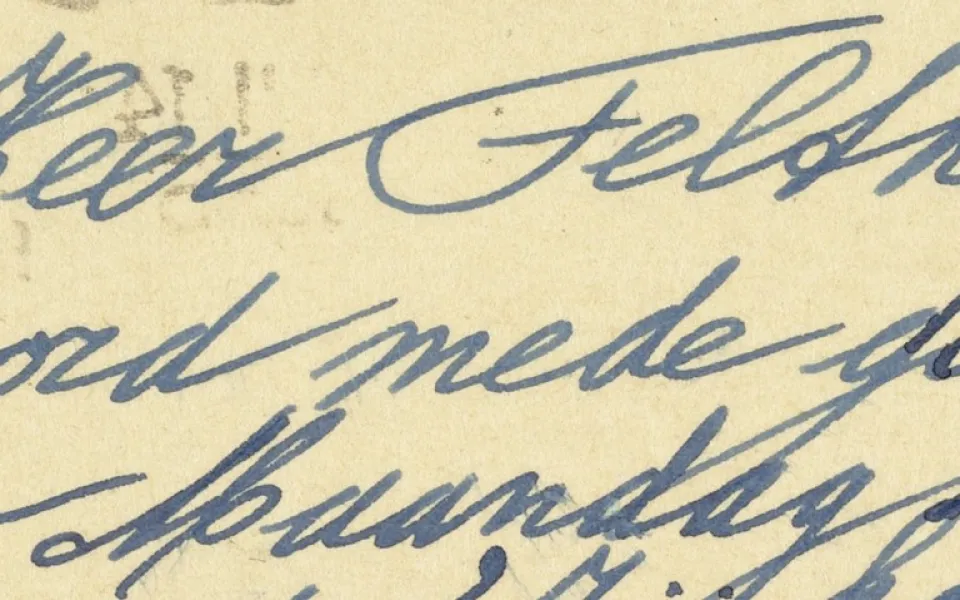 Heer Feldh
ord mede ge
Maandag